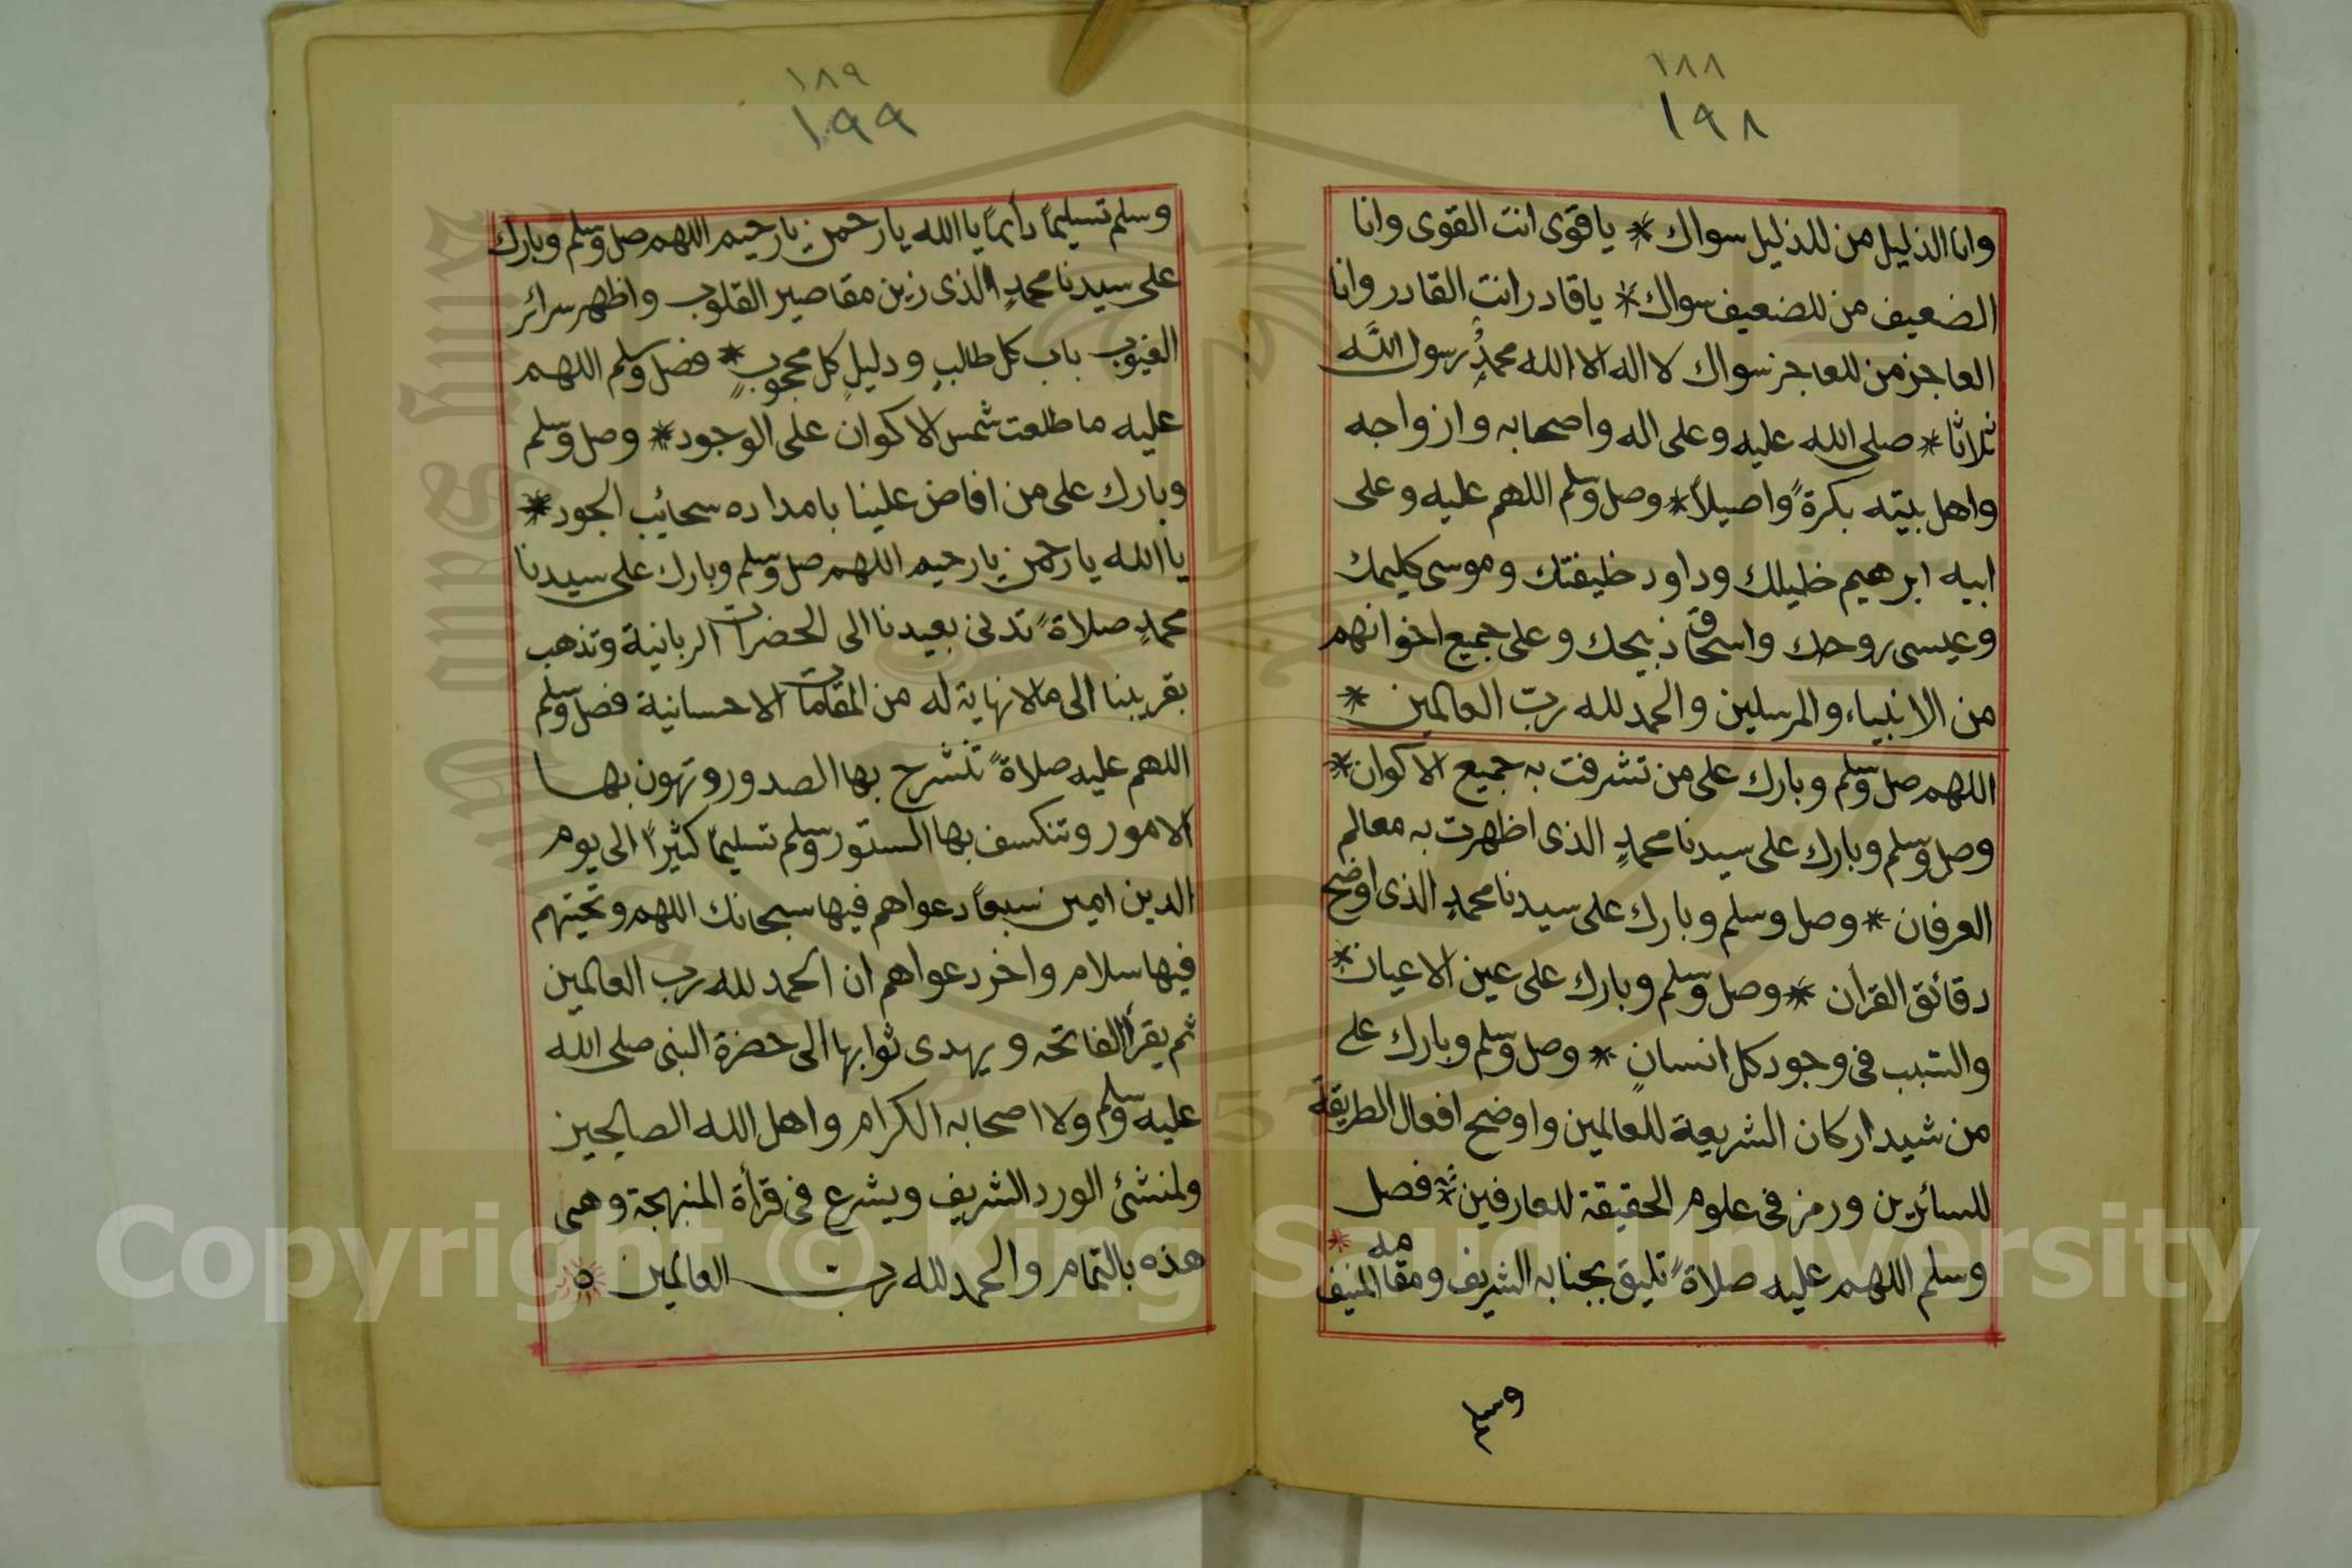 ١٨٨
١٩٨
وانا الذليل من للذليل سواك * يا قوى انت القوى وانا
الضعيف من للضعيف سواك * يا قادر انت القادر وانا
العاجز من للعاجز سواك لا اله الا الله محمدٌ رسول الله
ثلاثا * صلى الله عليه وعلى اله واصحابه وازواجه
واهل بيته بكرةً واصيلاً * وصل وسلم اللهم عليه وعلى
ابيه ابرهيم خليلك وداود خليفتك وموسى كليمك
وعيسى روحك واسحاق ذبيحك وعلى جميع اخوانهم
من الانبياء والمرسلين والحمد لله ربّ العالمين *
اللهم صل وسلم وبارك على من تشرفت به جميع الاكوان *
وصل وسلم وبارك على سيدنا محمدٍ الذى اظهرت به معالم
العرفان * وصل وسلم وبارك على سيدنا محمدٍ الذى اوضح
دقائق القرأن * وصل وسلم وبارك على عين الاعيان *
والسبب فى وجود كل انسانٍ * وصل وسلم وبارك على
من شيد اركان الشريعة للعالمين واوضح افعال الطريقة
للسائرين ورمز فى علوم الحقيقة للعارفين * فصل
وسلم اللهم عليه صلاةً تليق بجنابه الشريف ومقامه المنيف *
وسلم
١٨٩
١٩٩
وسلم تسليماً دأيماً يا الله يا رحمن يا رحيم اللهم صل وسلم وبارك
على سيدنا محمدٍ الذى زين مقاصير القلوب واظهر سرائر
الغيوب باب كل طالبٍ ودليلِ كل محجوبٍ * فصل وسلم اللهم
عليه ما طلعت شمس الاكوان على الوجود * وصل وسلم
وبارك على من افاض علينا بامداده سحائب الجود *
يا الله يا رحمن يا رحيم اللهم صل وسلم وبارك على سيدنا
محمدٍ صلاةً تدنى بعيدنا الى الحضرات الربانية وتذهب
بقريبنا الى ما لا نهاية له من المقامات الاحسانية فصل وسلم
اللهم عليه صلاةً تنشرح بها الصدور وتهون بها
الامور وتنكسف بها الستور وسلم تسليماً كثيراً الى يوم
الدين امين سبعاً دعواهم فيها سبحانك اللهم وتحيتهم
فيها سلام واخر دعواهم ان الحمد لله رب العالمين
ثم يقرأ الفاتحه ويهدى ثوابها الى حضرة النبى صلى الله
عليه وسلم ولاصحابه الكرام واهل الله الصالحين
ولمنشئ الورد الشريف ويشرع فى قرأة المنبهجة وهى
هذه بالتمام والحمد لله رب العالمين ٥
Copyright © King Saud University
King Saud University
1957